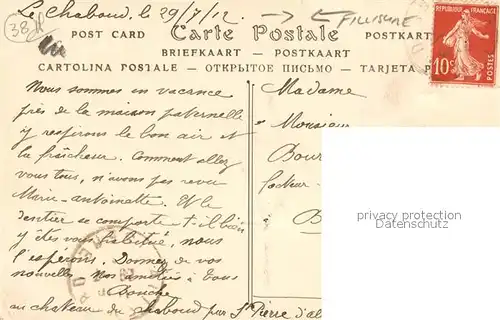 Le Chaboud, le 29/7/12
FILLISUME
38
POST CARD Carte Postale POSTKART
BRIEFKAART — POSTKAART
CARTOLINA POSTALE — ОТКРЫТОЕ ПИСЬМО — TARJETA P
RÉPUBLIQUE FRANÇAISE
10c
POSTES
Nous sommes en vacance
près de la maison paternelle
y respirons le bon air et
la fraîcheur. Comment allez
vous tous, n'avons pas revu
Marie-Antoinette. Et le
dentier se comporte-t-il bien
y êtes vous habitué, nous
l'espérons. Donnez de vos
nouvelles - Nos amitiés à tous
Bouche
au chateau du chaboud par St Pierre d'al
Madame
Monsieur
Bour
facteur
B
privacy protection
Datenschutz